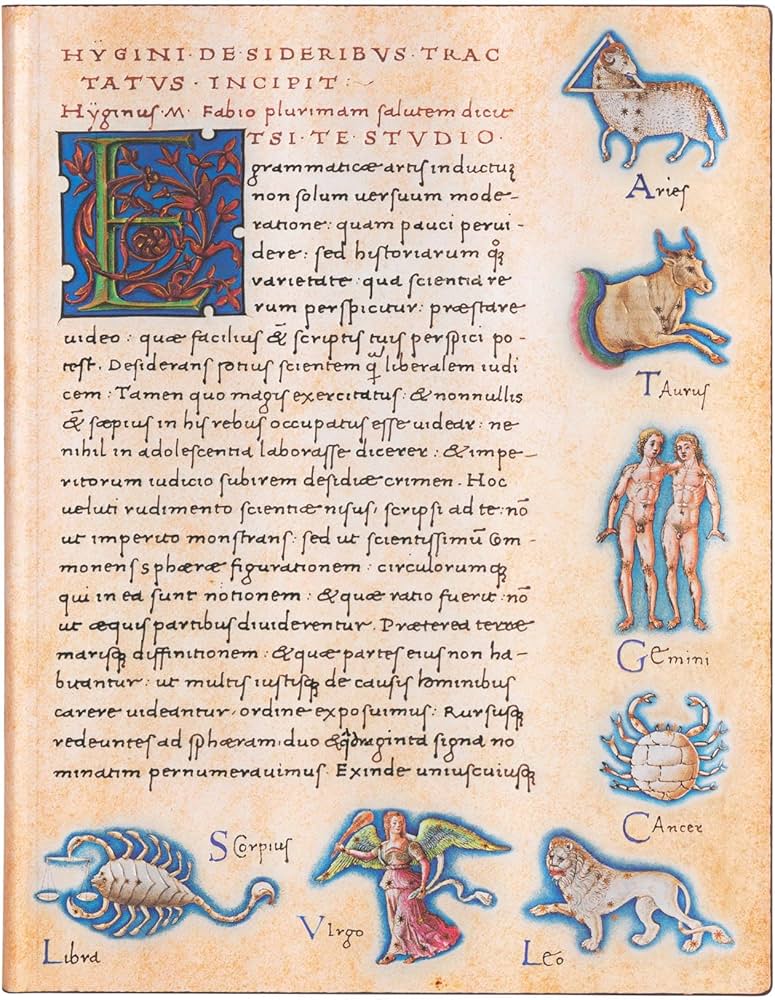 HŸGINI·DE·SIDERIBVS·TRAC
TATVS·INCIPIT:~
Hÿginus·M· Fabio plurimam salutem dicit
ETSI·TE·STVDIO·
grammaticæ artis inductuꝫ
non solum uersuum mode-
ratione: quam pauci perui-
dere: sed historiarum qͦꝫ
varietate: qua scientia re
rum perspicitur: præstare
uideo: quæ facilius & scriptis tuis perspici po-
test. Desiderans potius scientem ꝗ̃ liberalem iudi
cem: Tamen quo magis exercitatus: & nonnullis
& sæpius in his rebus occupatus esse uidear: ne
nihil in adolescentia laborasse dicerer: & impe-
ritorum iudicio subirem desidiæ crimen. Hoc
ueluti rudimento scientiæ nisus, scripsi ad te: nō
ut imperito monstrans: sed ut scientissimū Com-
monens sphæræ figurationem: circulorumqꝫ
qui in ea sunt notionem: & quæ ratio fuerit: nō
ut æquis partibus diuiderentur. Præterea terræ
marisqꝫ diffinitionem: & quæ partes eius non ha-
bitantur: ut multis iustisqꝫ de causis hominibus
carere uideantur, ordine exposuimus: Rursusqꝫ
redeuntes ad sphæram, duo & qͣdraginta signa no
minatim pernumerauimus. Exinde uniuscuiusqꝫ
Aries
TAurus
GEmini
CAncer
LEo
VIrgo
SCorpius
Libra